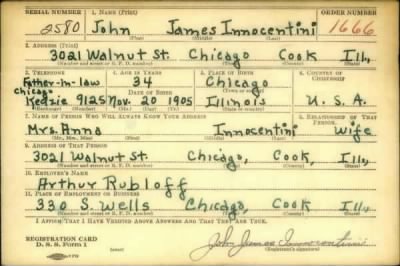 SERIAL NUMBER 1. NAME (Print) ORDER NUMBER
2580 John James Innocentini 1666
(First) (Middle) (Last)
2. ADDRESS (Print)
3021 Walnut St. Chicago Cook Ill,
(Number and street or R. F. D. number) (Town) (County) (State)
3. TELEPHONE 4. AGE IN YEARS 5. PLACE OF BIRTH 6. COUNTRY OF CITIZENSHIP
Father-in-law 34 Chicago
Chicago DATE OF BIRTH (Town or county)
Kedzie 9125 Nov. 20 1905 Illinois U. S. A.
(Exchange) (Number) (Mo.) (Day) (Yr.) (State or country)
7. NAME OF PERSON WHO WILL ALWAYS KNOW YOUR ADDRESS 8. RELATIONSHIP OF THAT PERSON
Mrs. Anna Innocentini Wife
(Mr., Mrs., Miss) (First) (Middle) (Last)
9. ADDRESS OF THAT PERSON
3021 Walnut St. Chicago, Cook, Ill,
(Number and street or R. F. D. number) (Town) (County) (State)
10. EMPLOYER'S NAME
Arthur Rubloff
11. PLACE OF EMPLOYMENT OR BUSINESS
330 S. Wells Chicago, Cook, Ill,
(Number and street or R. F. D. number) (Town) (County) (State)
I AFFIRM THAT I HAVE VERIFIED ABOVE ANSWERS AND THAT THEY ARE TRUE.
REGISTRATION CARD
D. S. S. Form 1 John James Innocentini
(Registrant's signature)